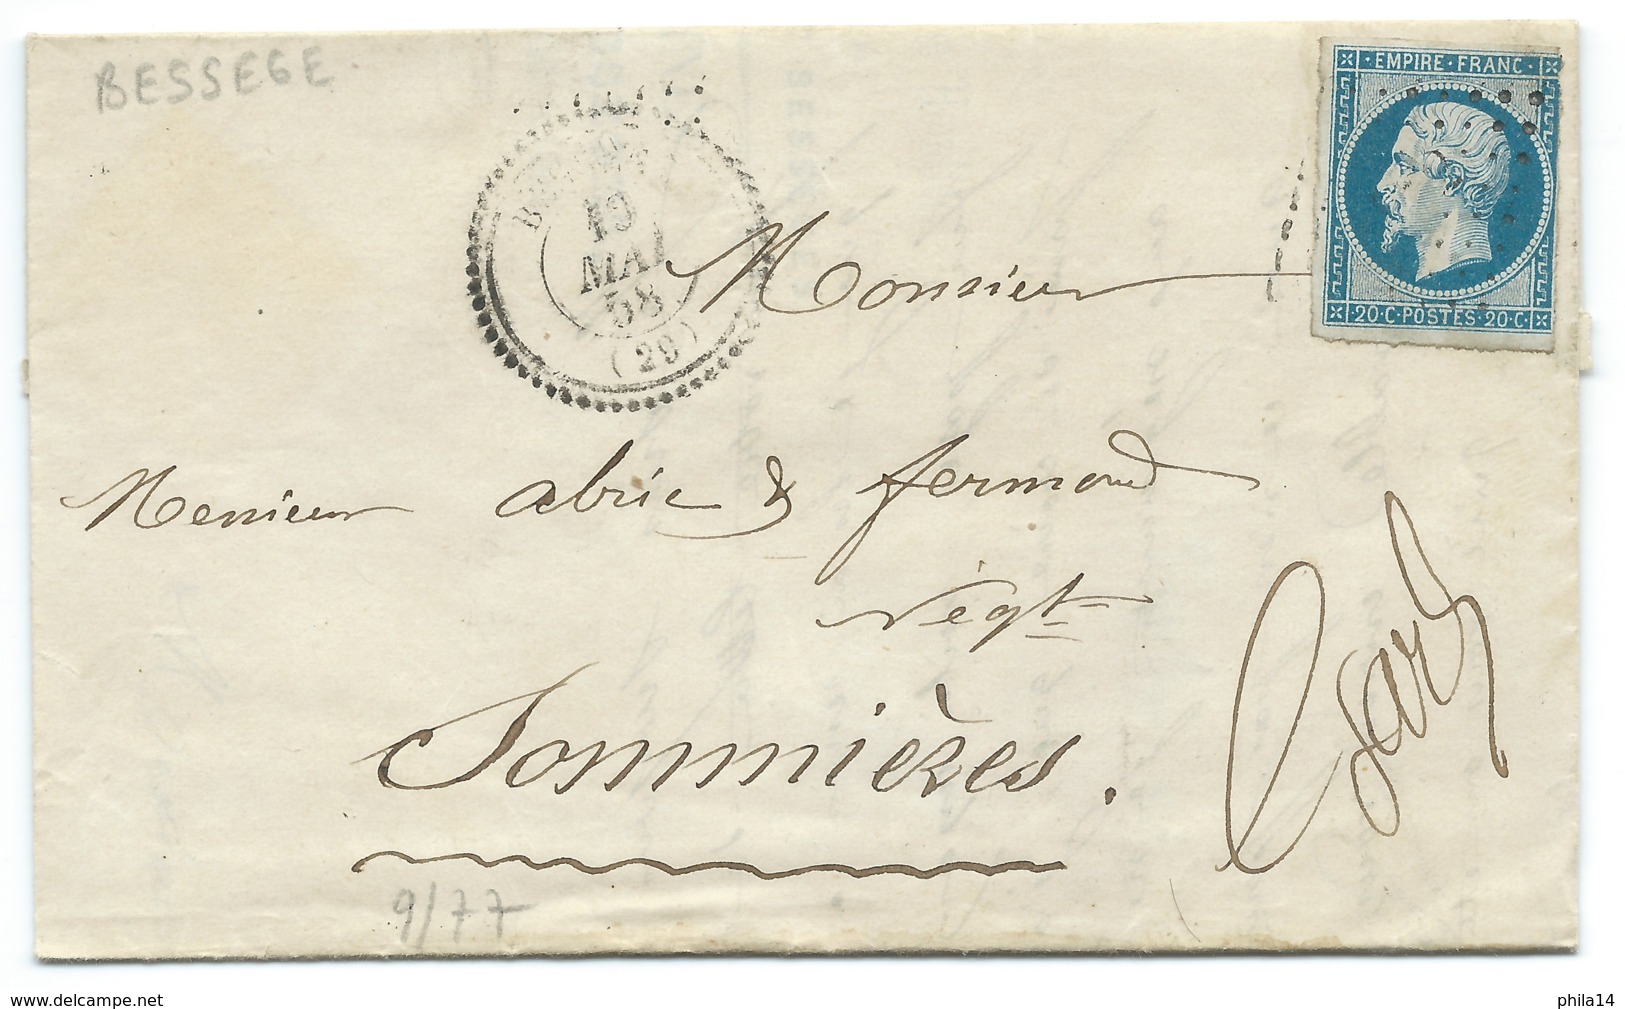 BESSEGE
· EMPIRE · FRANC ·
· 20 · C · POSTES · 20 · C ·
19
MAI
58
(29)
Monsieur
Messieurs abric & fermaud
Négts
Sommières.
Gard
9/77
www.delcampe.net
phila14